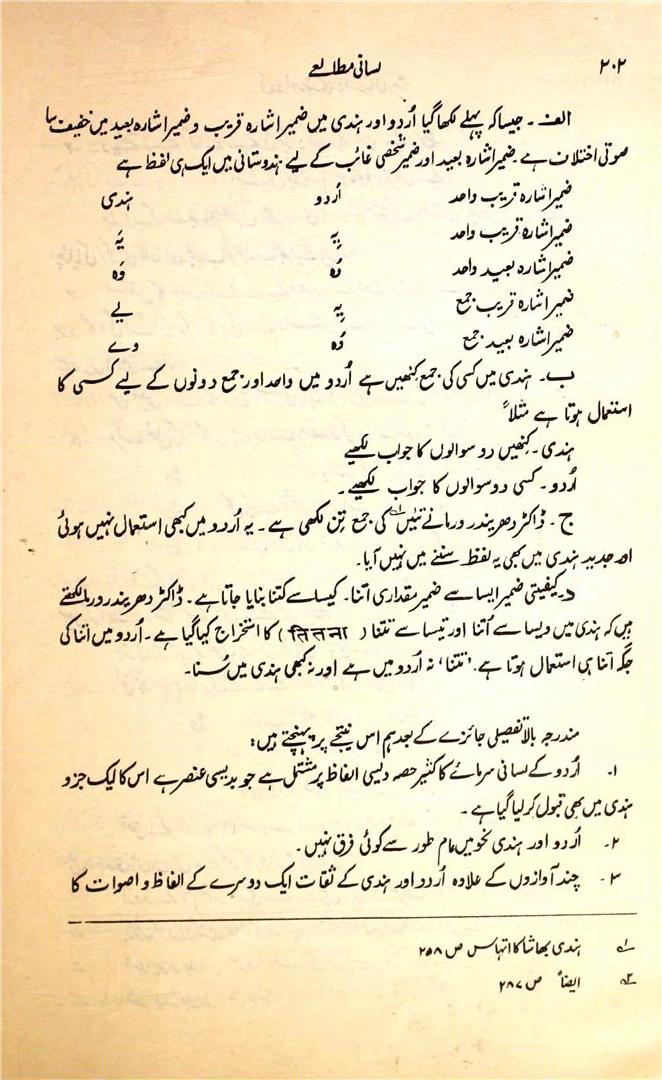 ۲۰۲
لسانی مطالعے
الف ۔ جیسا کہ پہلے لکھا گیا اُردو اور ہندی میں ضمیر اشارہ قریب و ضمیر اشارہ بعید میں خفیف سا
صوتی اختلاف ہے۔ ضمیر اشارہ بعید اور ضمیر شخصی غائب کے لیے ہندوستانی میں ایک ہی لفظ ہے
ضمیر اشارہ قریب واحد اُردو ہندی
ضمیر اشارہ قریب واحد یِہ یَہ
ضمیر اشارہ بعید واحد وُہ وَہ
ضمیر اشارہ قریب جمع یِہ یے
ضمیر اشارہ بعید جمع وُہ وے
ب۔ ہندی میں کسی کی جمع کنھیں ہے اُردو میں واحد اور جمع دونوں کے لیے کسی کا
استعمال ہوتا ہے مثلاً
ہندی ۔ کنھیں دو سوالوں کا جواب لکھیے
اُردو ۔ کسی دو سوالوں کا جواب لکھیے ۔
ج ۔ ڈاکٹر دھریندر ورما نے کی جمع تِن لکھی ہے ۔ یہ اُردو میں کبھی استعمال نہیں ہوئی
اور جدید ہندی میں کبھی یہ لفظ سننے میں نہیں آیا۔
د۔ کیفیتی ضمیر ایسا سے ضمیر مقداری اتنا۔ کیسا سے کتنا بنایا جاتا ہے ۔ ڈاکٹر دھریندر ورما لکھتے
ہیں کہ ہندی میں ویسا سے اُتنا اور تیسا سے تتنا ( तितना ) کا استخراج کیا گیا ہے ۔ اُردو میں اتنا کی
جگہ اتنا ہی استعمال ہوتا ہے ۔ 'تتنا' نہ اُردو میں ہے اور نہ کبھی ہندی میں سُنا۔
مندرجہ بالا تفصیلی جائزے کے بعد ہم اس نتیجے پر پہنچتے ہیں:
۱۔ اُردو کے لسانی سرمائے کا کثیر حصہ دیسی الفاظ پر مشتمل ہے جو بدیسی عنصر ہے اس کا ایک جزو
ہندی میں بھی قبول کر لیا گیا ہے ۔
۲۔ اُردو اور ہندی نحو میں عام طور سے کوئی فرق نہیں ۔
۳۔ چند آوازوں کے علاوہ اُردو اور ہندی کے ثقات ایک دوسرے کے الفاظ و اصوات کا
۱ ہندی بھاشا کا اتہاس ص ۲۵۸
۲ ایضاً ص ۲۸۷